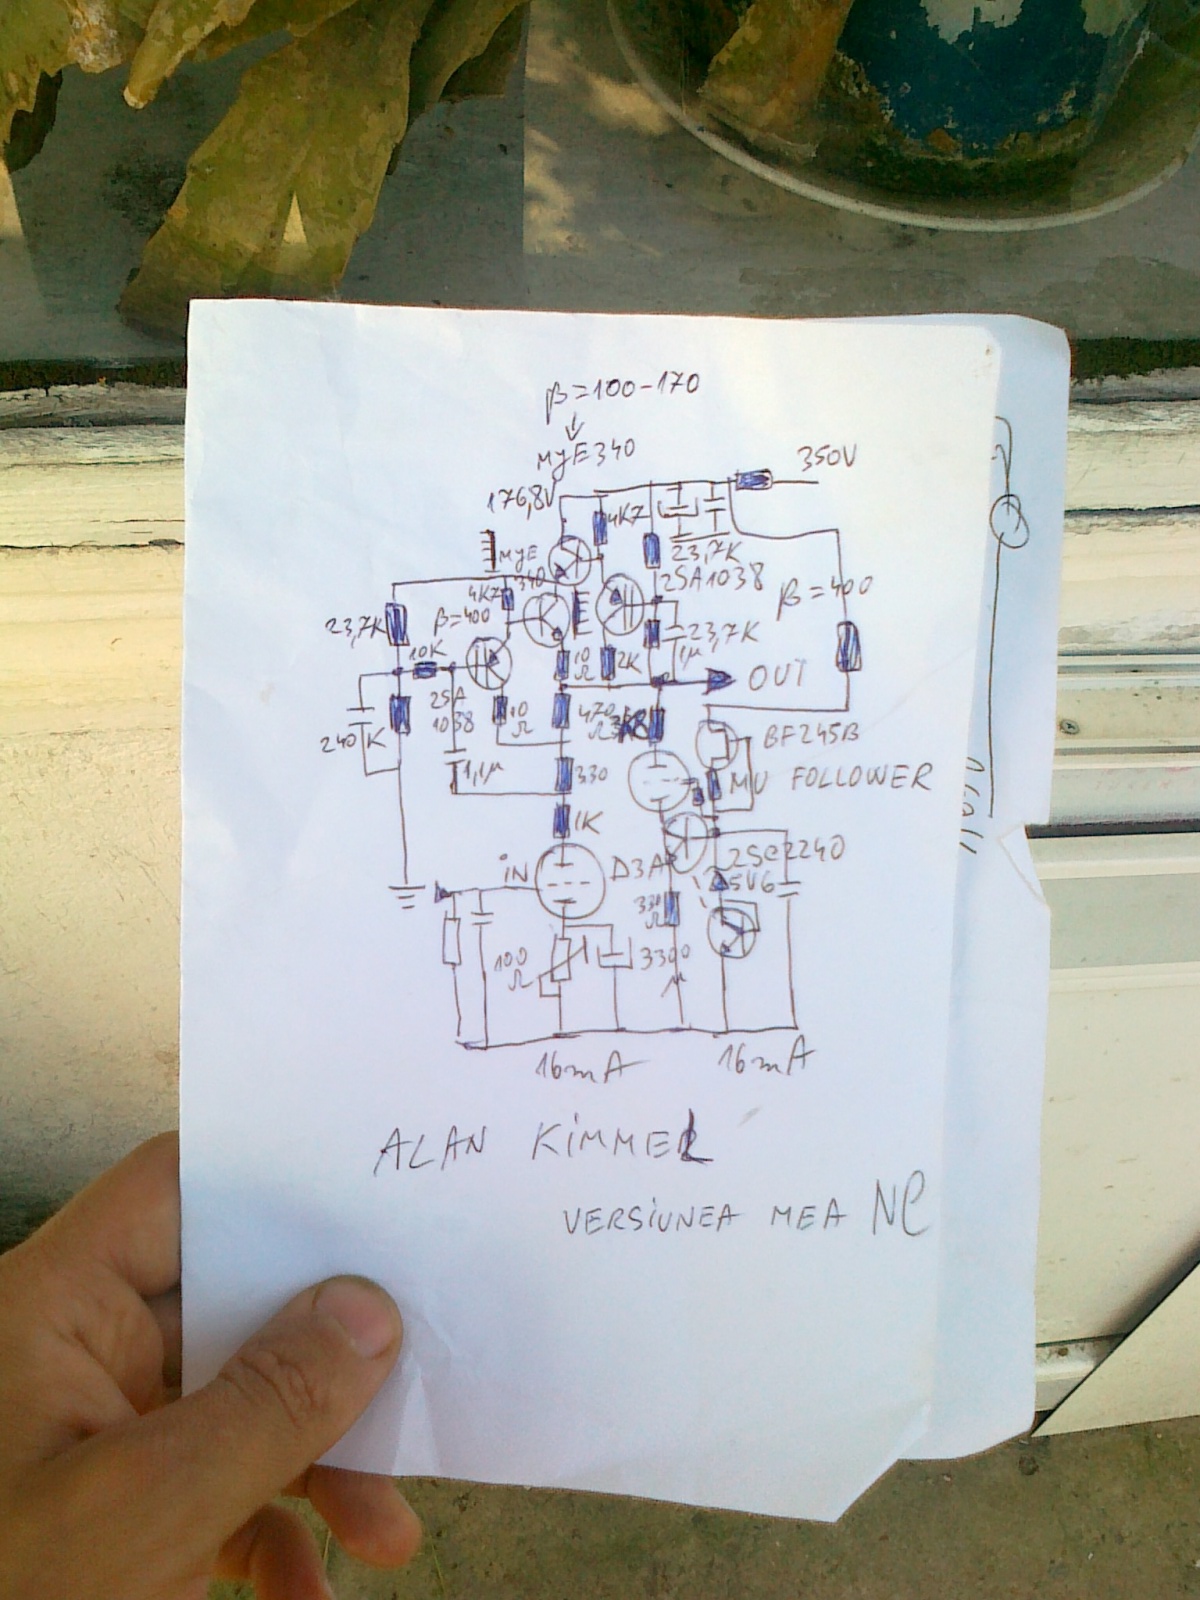 β=100-170
MJE340
350V
176,8V
4K7
MJE
340
23,7K
2SA1038
4K7
β=400
β=400
23,7K
23,7K
1µ
10K
10
Ω
2K
OUT
2SA
1038
10
Ω
470
Ω
240K
BF245B
1,1µ
330
MU FOLLOWER
1K
iN
D3A
2SC2240
5V6
330
Ω
100
Ω
3300
µ
16mA
16mA
ALAN KiMMEL
VERSiUNEA MEA NC